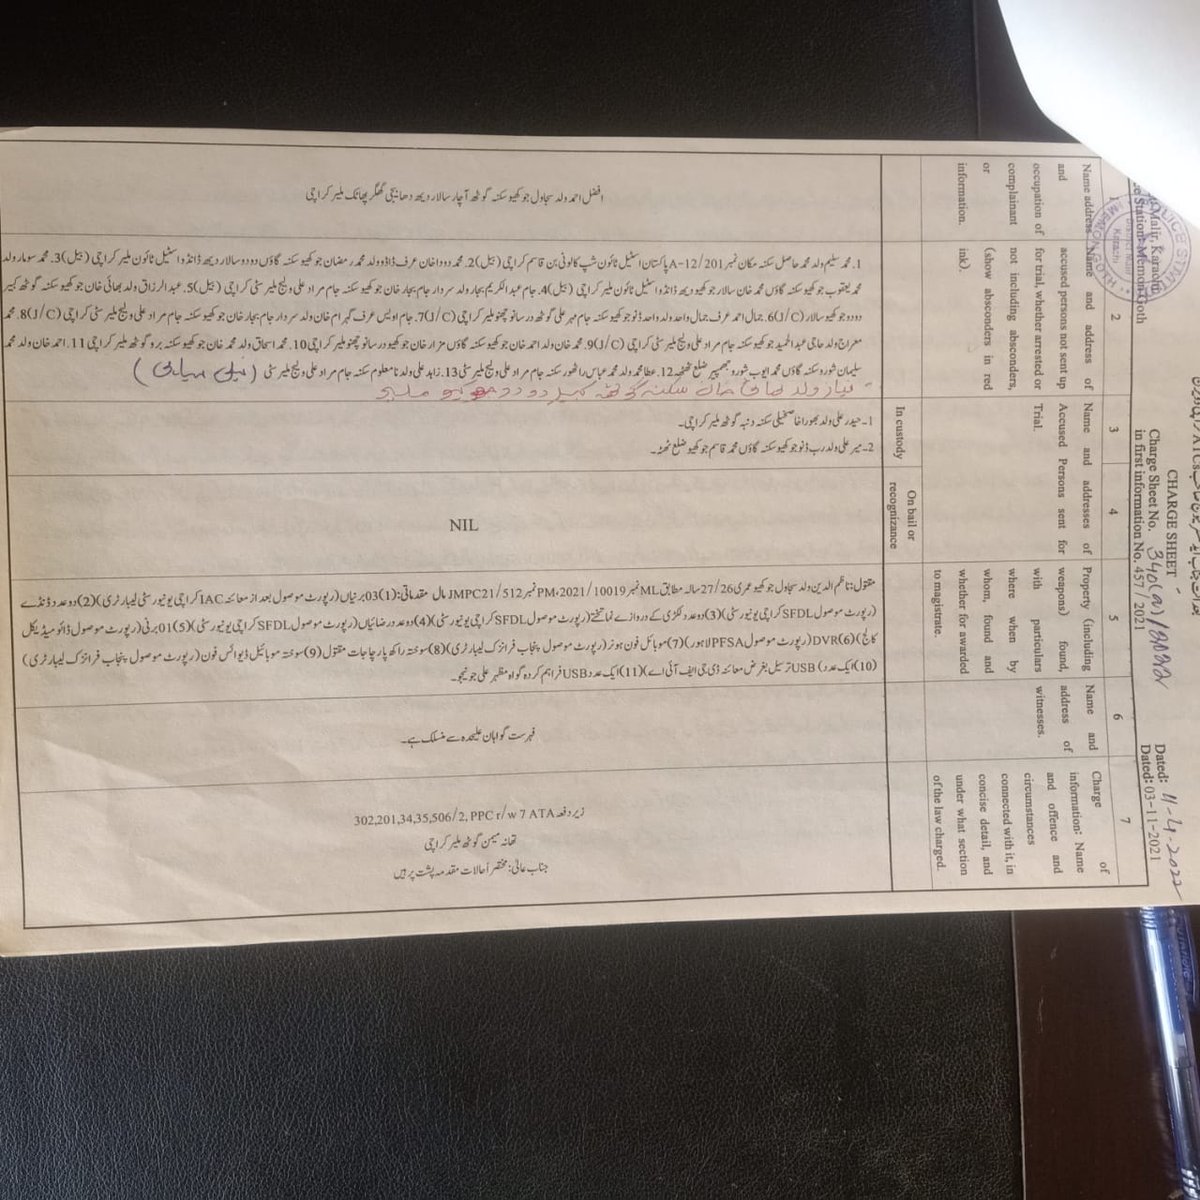 CHARGE SHEET
Charge Sheet No. 340(a)/2022 Dated: 11-4-2022
in first information No. 457/2021 Dated: 03-11-2021
Malir, Karachi
Station Memon Goth
1
2
3
4
5
6
7
Name address and occupation of complainant or information.
Name and address of accused persons not sent up for trial, whether arrested or not including absconders, (show absconders in red ink).
Name and addresses of Accused Persons sent for Trial.
In custody
On bail or recognizance
Property (including weapons) found, with particulars where when by whom, found and whether for awarded to magistrate.
Name and address of witnesses.
Charge of information: Name and offence and circumstances connected with it, in concise detail, and under what section of the law charged.
افضل احمد ولد سجاول جوکھیو سکنہ گوٹھ آچار سالار دیھ دھابیجی گھگر پھاٹک ملیر کراچی
1. محمد سلیم ولد محمد حاصل سکنہ مکان نمبر A-12/201 پاکستان اسٹیل ٹاؤن شپ کالونی بن قاسم کراچی (بیل) 2. محمد دودا خان عرف ڈاڈو ولد محمد رمضان جوکھیو سکنہ گاؤں دودو سالار دیھ ڈانڈو اسٹیل ٹاؤن ملیر کراچی (بیل) 3. محمد سومار ولد
محمد یعقوب جوکھیو سکنہ گاؤں محمد خان سالار جوکھیو دیھ ڈانڈو اسٹیل ٹاؤن ملیر کراچی (بیل) 4. جام عبدالکریم بجار ولد سردار جام بجار خان جوکھیو سکنہ جام مراد علی ولیج ملیر سٹی کراچی (بیل) 5. عبدالرزاق ولد بھائی خان جوکھیو سکنہ گوٹھ کبیر
دودو جوکھیو سالار (J/C) 6. جمال احمد عرف جمال واحد ولد واحد ڈنو جوکھیو سکنہ جام مہر علی گوٹھ درسانو چھنو ملیر کراچی (J/C) 7. جام اویس عرف گہرام خان ولد سردار جام بجار خان جوکھیو سکنہ جام مراد علی ولیج ملیر سٹی کراچی (J/C) 8. محمد
معراج ولد حاجی عبدالحمید جوکھیو سکنہ جام مراد علی ولیج ملیر سٹی کراچی (J/C) 9. محمد خان ولد احمد خان جوکھیو سکنہ گاؤں مزار خان جوکھیو درسانو چھنو ملیر کراچی 10. محمد اسحاق ولد محمد خان جوکھیو سکنہ برو گوٹھ ملیر کراچی 11. احمد خان ولد محمد
سلیمان شورو سکنہ گاؤں محمد ایوب شورو جھمپیر ضلع ٹھٹھہ 12. عطا محمد ولد محمد عباس راٹھور سکنہ جام مراد علی ولیج ملیر سٹی 13. زاہد علی ولد نامعلوم سکنہ جام مراد علی ولیج ملیر سٹی
نیاز ولد خان سکنہ گوٹھ کبیر دودو جوکھیو ملیر
1۔ حیدر علی ولد بھورا خاصخیلی سکنہ دنبہ گوٹھ ملیر کراچی۔
2۔ میر علی ولد رب ڈنو جوکھیو سکنہ گاؤں محمد قاسم جوکھیو ضلع ٹھٹہ۔
NIL
مقتول: ناظم الدین ولد سجاول جوکھیو عمری 27/26 سالہ مطابق ML نمبر PM،2021/10019 نمبر JMPC21/512 مال مقدماتی: (1) 03 برنیاں (رپورٹ موصول بعد از معائنہ IAC کراچی یونیورسٹی لیبارٹری) (2) دو عدد ڈنڈے
(رپورٹ موصول SFDL کراچی یونیورسٹی) (3) دو عدد لکڑی کے دروازے نما تختے (رپورٹ موصول SFDL کراچی یونیورسٹی) (4) دو عدد رضائیاں (رپورٹ موصول SFDL کراچی یونیورسٹی) (5) 01 برنی (رپورٹ موصول ڈائو میڈیکل
کالج) (6) DVR (رپورٹ موصول PFSA لاہور) (7) موبائل فون ہونر (رپورٹ موصول پنجاب فرانزک لیبارٹری) (8) سوختہ راکھ پارچاجات مقتول (9) سوختہ موبائیل ڈیوائس فون (رپورٹ موصول پنجاب فرانزک لیبارٹری)
(10) ایک عدد USB ترسیل بغرض معائنہ ڈی جی ایف آئی اے (11) ایک عدد USB فراہم کردہ گواہ مظہر علی جونیجو۔
فہرست گواہان علیحدہ سے منسلک ہے۔
زیر دفعہ 302,201,34,35,506/2, PPC r/w 7 ATA
تھانہ میمن گوٹھ ملیر کراچی
جناب عالی: مختصراً حالات مقدمہ پشت پر ہیں